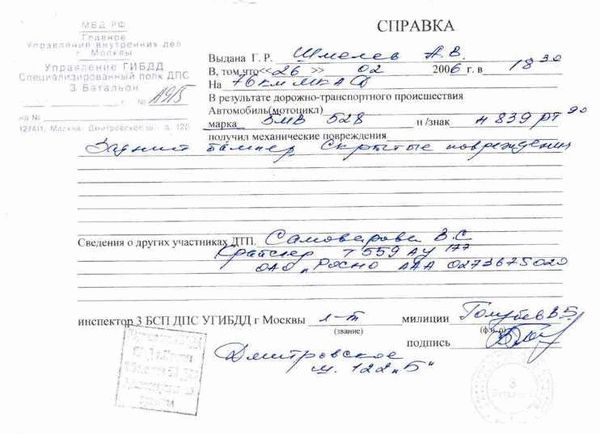 МВД РФ
Главное
Управление внутренних дел
г. Москвы
Управление ГИБДД
Специализированный полк ДПС
3 Батальон
г. №
на №
127411, Москва, Дмитровское ш., д. 120
СПРАВКА
Выдана Г. Р. Шмелев А.В.
В, том,что<<26 >> 02 2006 г. в 18 30
На 76 км МКАД
В результате дорожно-транспортного происшествия
Автомобиль(мотоцикл)
марка БМВ 528 н/знак Н 839 РТ 90
получил механические повреждения
Задний бампер Скрытые повреждения
Сведения о других участниках ДТП. Самоварова В.С
Крайслер Т 559 АУ 177
ОАО „РОСНО ААА 0273675020
инспектор 3 БСП ДПС УГИБДД г Москвы л-т милиции Голубев В.Б.
(звание) (ф.и.о)
подпись
Дмитровское
ш. 122 „Б"